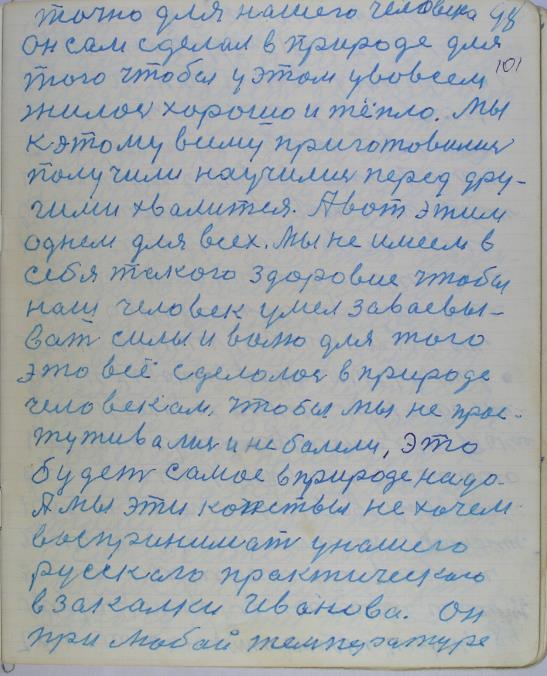 точно для нашего человека 98
Он сам сделал в природе для
того чтобы у этом увовсем 101
жилося хорошо и тёпло. Мы
к этому всиму приготовилися
получили научилися перед дру-
гими хвалится. А вот этим
однем для всех. Мы не имеем в
себя такого здоровие чтобы
наш человек умел заваевы-
ват силы и волю для того
это всё сделолося в природе
человекам, чтобы мы не прос-
туживалися и не балели, это
будет самое в природе надо.
А мы эти качествы не хочем
воспринимат у нашего
русскаго практическаго
в закалки Иванова. Он
при любой температуре